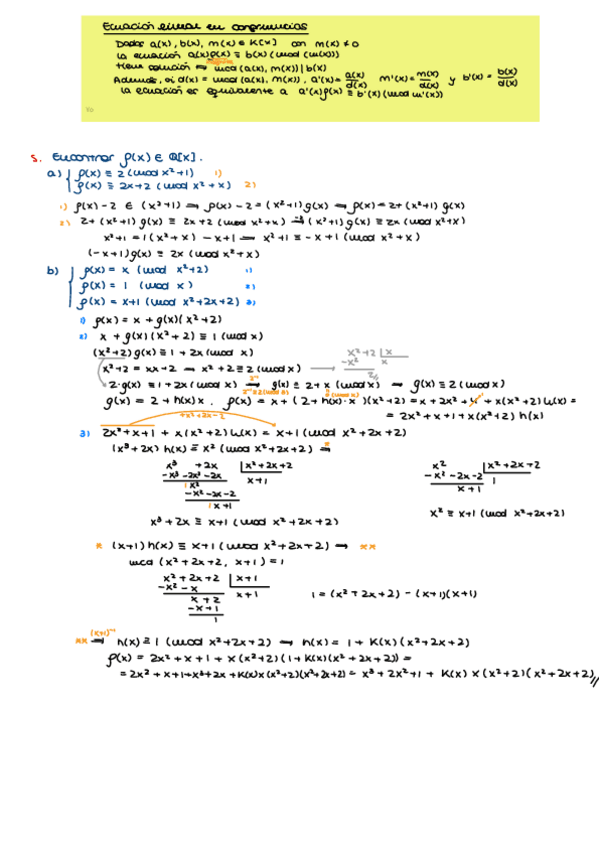 Ecuación lineal en congruencias
Dados a(x), b(x), m(x) ∈ K[x] con m(x) ≠ 0
la ecuación a(x)ρ(x) ≡ b(x) (mod (m(x))
tiene solución ⇒ mcd (a(x), m(x)) | b(x)
Además, si d(x) = mcd (a(x), m(x)), a'(x) = a(x)/d(x) m'(x) = m(x)/d(x) y b'(x) = b(x)/d(x)
la ecuación es equivalente a a'(x)ρ(x) ≡ b'(x) (mod m'(x))
5. Encontrar ρ(x) ∈ Q[x].
a) ρ(x) ≡ 2 (mod x²+1) 1)
ρ(x) ≡ 2x+2 (mod x²+x) 2)
1) ρ(x)-2 ∈ (x²+1) → ρ(x)-2 = (x²+1) g(x) → ρ(x) = 2+(x²+1) g(x)
2) 2+(x²+1) g(x) ≡ 2x+2 (mod x²+x) → (x²+1) g(x) ≡ 2x (mod x²+x)
x²+1 = 1(x²+x) -x+1 → x²+1 ≡ -x+1 (mod x²+x)
(-x+1)g(x) ≡ 2x (mod x²+x)
b) ρ(x) = x (mod x²+2) 1)
ρ(x) = 1 (mod x) 2)
ρ(x) = x+1 (mod x²+2x+2) 3)
1) ρ(x) = x + g(x)(x²+2)
2) x + g(x)(x²+2) ≡ 1 (mod x)
(x²+2) g(x) ≡ 1+2x (mod x) x²+2 | x
x²+2 = x·x+2 → x²+2 ≡ 2 (mod x) -x² x
2·g(x) ≡ 1+2x (mod x) → g(x) ≡ 2+x (mod x) → g(x) ≡ 2 (mod x)
g(x) = 2 + h(x)x. ρ(x) = x + (2+h(x)·x)(x²+2) = x + 2x² + 4 + x(x²+2) h(x) =
= 2x²+x+1+x(x²+2) h(x)
3) 2x²+x+1 + x(x²+2) h(x) = x+1 (mod x²+2x+2)
(x³+2x) h(x) ≡ x² (mod x²+2x+2) →
x³ +2x | x²+2x+2 x² | x²+2x+2
-x³-2x²-2x x+1 -x²-2x-2 1
x² x+1
-x²-2x-2
x+1 x² ≡ x+1 (mod x²+2x+2)
x³+2x ≡ x+1 (mod x²+2x+2)
* (x+1) h(x) ≡ x+1 (mod x²+2x+2) → **
mcd (x²+2x+2, x+1) = 1
x²+2x+2 | x+1
-x²-x x+1 1 = (x²+2x+2) - (x+1)(x+1)
x+2
-x+1
1
** (x+1)⁻¹ → h(x) ≡ 1 (mod x²+2x+2) → h(x) = 1 + K(x)(x²+2x+2)
ρ(x) = 2x²+x+1 + x(x²+2)(1+K(x)(x²+2x+2)) =
= 2x²+x+1+x³+2x+K(x)x(x²+2)(x²+2x+2) = x³+2x²+1 + K(x) x (x²+2)(x²+2x+2)//